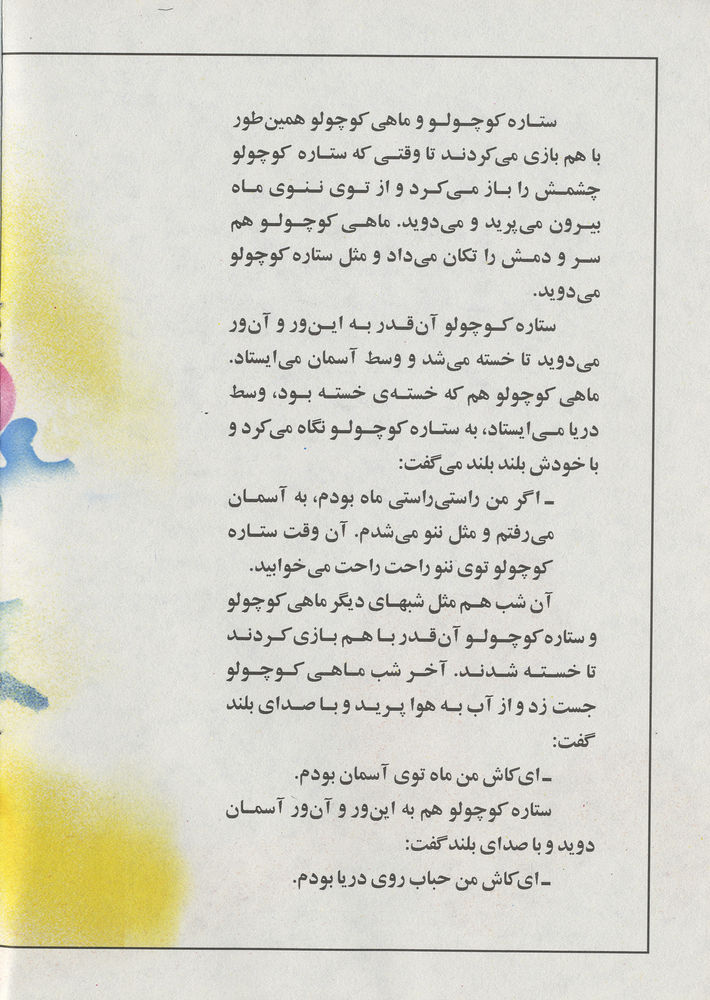 ستاره کوچولو و ماهی کوچولو همین‌طور
با هم بازی می‌کردند تا وقتی که ستاره کوچولو
چشمش را باز می‌کرد و از توی ننوی ماه
بیرون می‌پرید و می‌دوید. ماهی کوچولو هم
سر و دمش را تکان می‌داد و مثل ستاره کوچولو
می‌دوید.
ستاره کوچولو آن‌قدر به این‌ور و آن‌ور
می‌دوید تا خسته می‌شد و وسط آسمان می‌ایستاد.
ماهی کوچولو هم که خسته‌ی خسته بود، وسط
دریا می‌ایستاد، به ستاره کوچولو نگاه می‌کرد و
با خودش بلند بلند می‌گفت:
ـ اگر من راستی‌راستی ماه بودم، به آسمان
می‌رفتم و مثل ننو می‌شدم. آن وقت ستاره
کوچولو توی ننو راحت راحت می‌خوابید.
آن شب هم مثل شبهای دیگر ماهی کوچولو
و ستاره کوچولو آن‌قدر با هم بازی کردند
تا خسته شدند. آخر شب ماهی کوچولو
جست زد و از آب به هوا پرید و با صدای بلند
گفت:
ـ ای‌کاش من ماه توی آسمان بودم.
ستاره کوچولو هم به این‌ور و آن‌ور آسمان
دوید و با صدای بلند گفت:
ـ ای‌کاش من حباب روی دریا بودم.